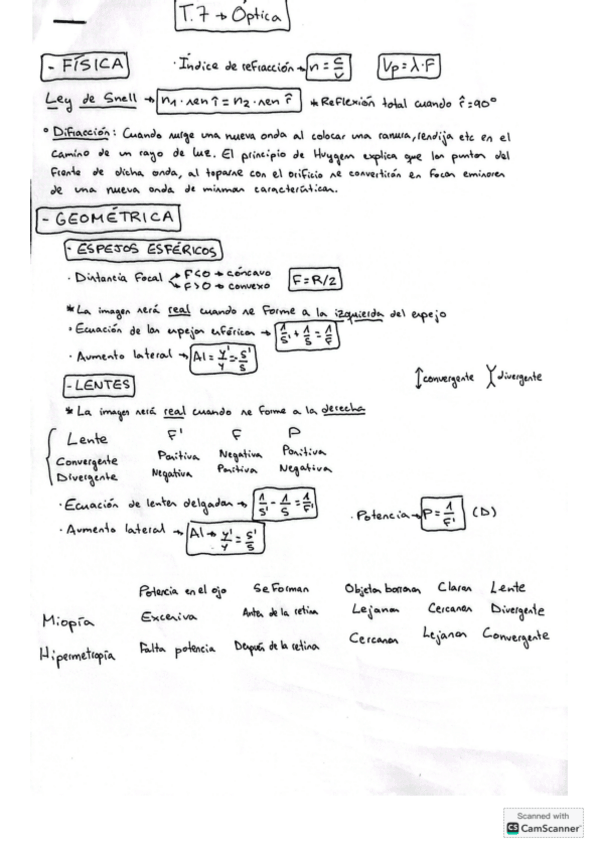 T.7 → Óptica
- FÍSICA · Índice de refracción → n = c/v Vp = λ·F
Ley de Snell → n1 · sen î = n2 · sen r̂ * Reflexión total cuando r̂ = 90º
º Difracción: Cuando surge una nueva onda al colocar una ranura, rendija etc en el
camino de un rayo de luz. El principio de Huygen explica que los puntos del
frente de dicha onda, al toparse con el orificio se convertirán en focos emisores
de una nueva onda de mismas características.
- GEOMÉTRICA
- ESPEJOS ESFÉRICOS
· Distancia focal F<0 → cóncavo F = R/2
F>0 → convexo
* La imagen será real cuando se forme a la izquierda del espejo
· Ecuación de los espejos esféricos → 1/s' + 1/s = 1/F
· Aumento lateral → Al = y'/y = -s'/s
- LENTES convergente divergente
* La imagen será real cuando se forme a la derecha
Lente F' F P
Convergente Positiva Negativa Positiva
Divergente Negativa Positiva Negativa
· Ecuación de lentes delgadas → 1/s' - 1/s = 1/F' · Potencia → P = 1/F' (D)
· Aumento lateral → Al → y'/y = s'/s
Potencia en el ojo Se Forman Objetos borrosos Claros Lente
Miopía Excesiva Antes de la retina Lejanos Cercanos Divergente
Hipermetropía Falta potencia Después de la retina Cercanos Lejanos Convergente
Scanned with
CS CamScanner